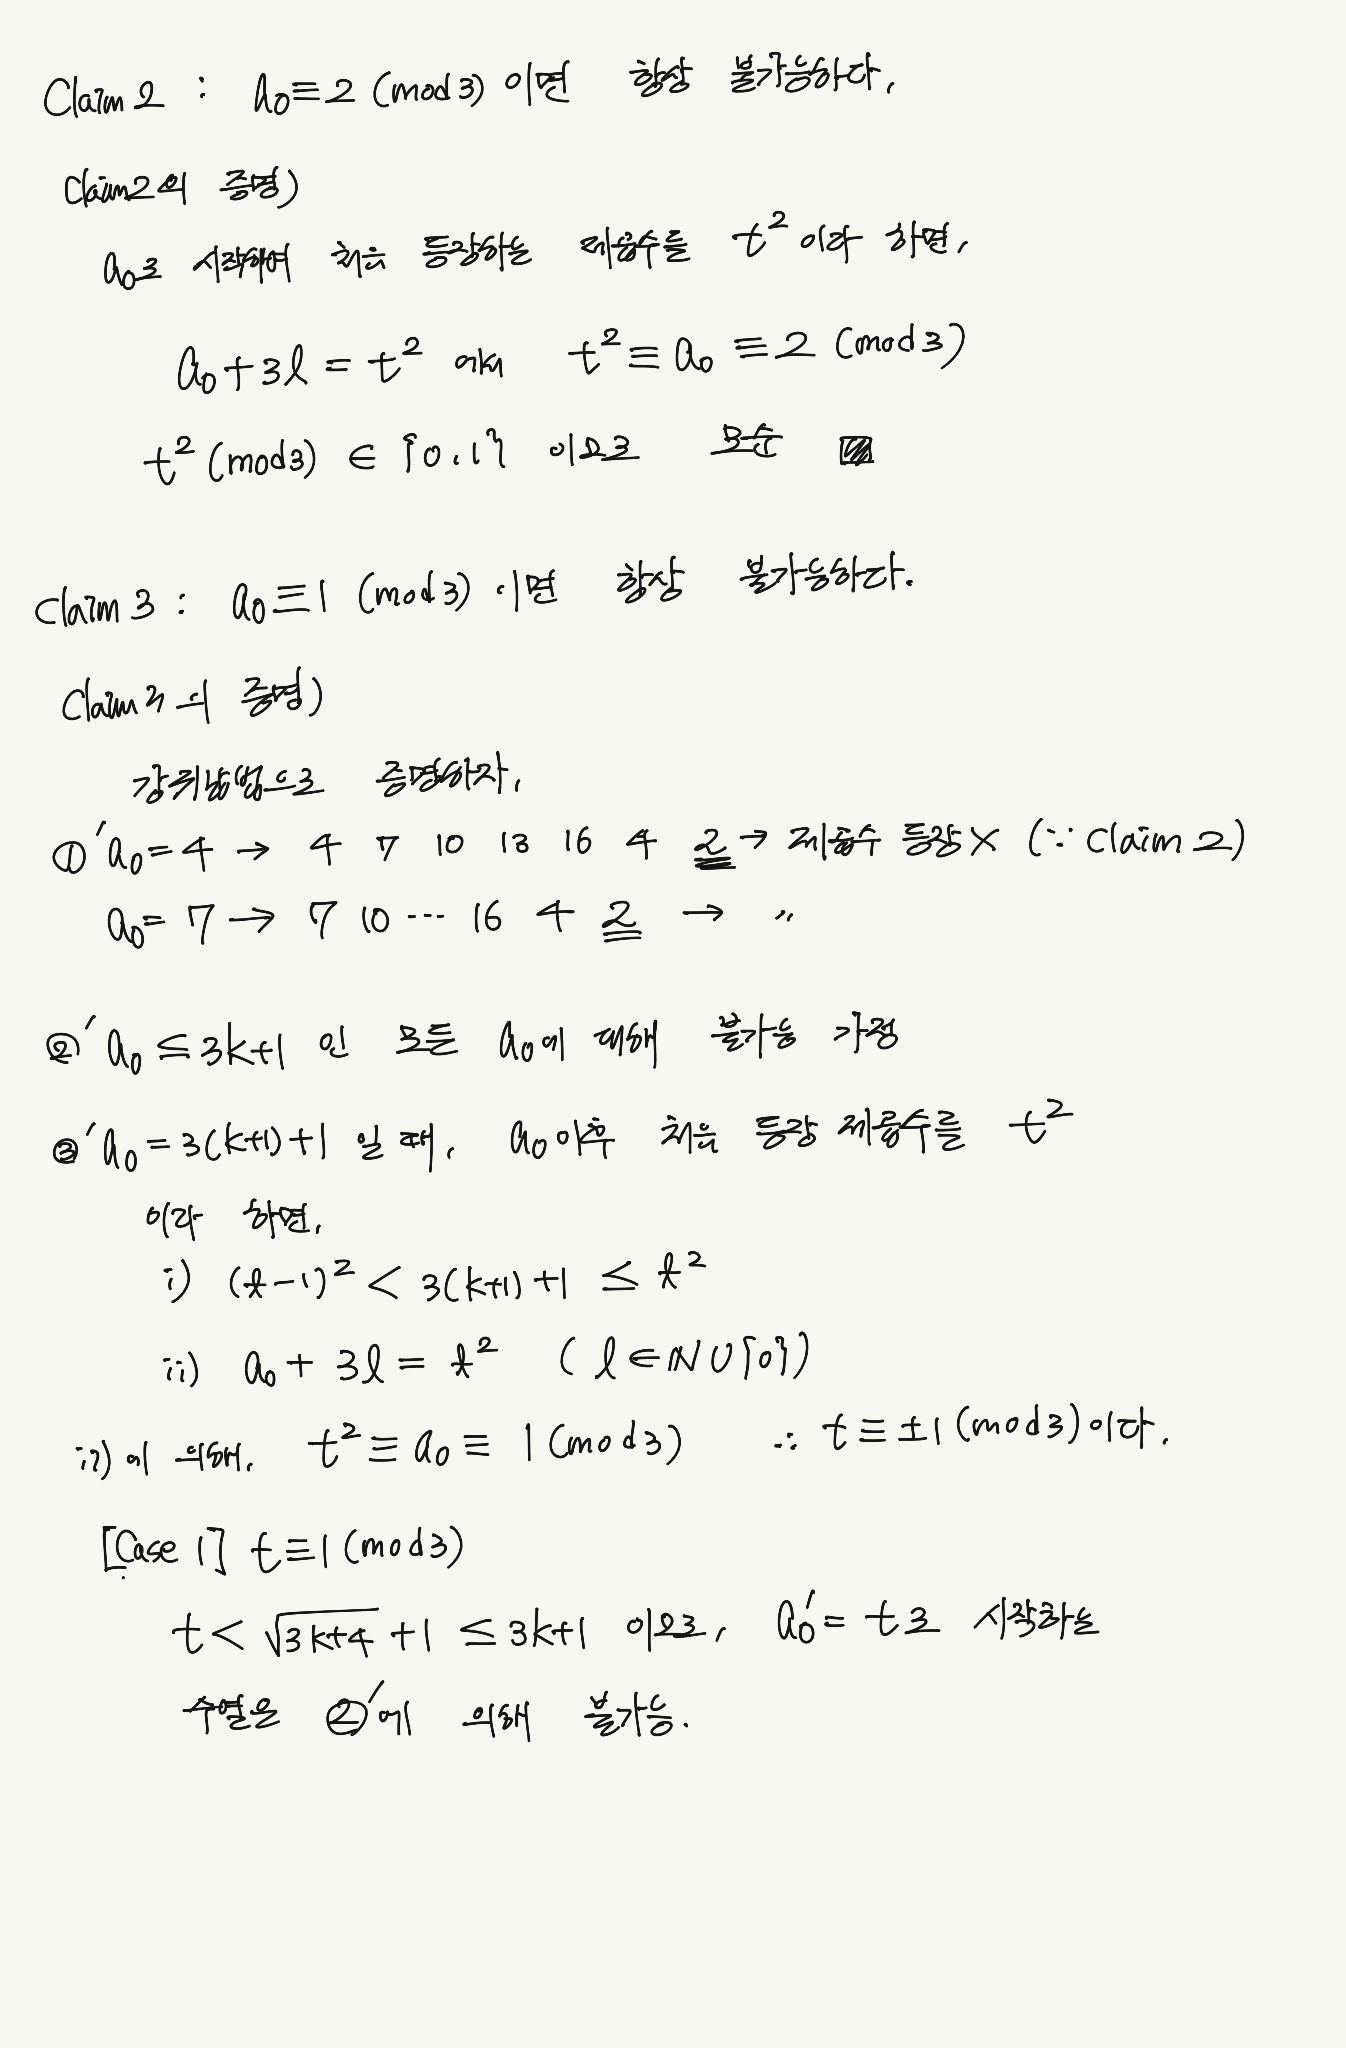 Claim 2 : a₀≡2 (mod 3) 이면 항상 불가능하다.
Claim 2의 증명)
a₀로 시작하여 처음 등장하는 제곱수를 t² 이라 하면,
a₀+3l = t² t² ≡ a₀ ≡ 2 (mod 3)
t² (mod 3) ∈ {0, 1} 이므로 모순 ▨
Claim 3 : a₀≡1 (mod 3) 이면 항상 불가능하다.
Claim 3의 증명)
강귀납법으로 증명하자.
①′ a₀=4 → 4 7 10 13 16 4 2 → 제곱수 등장X (∵ Claim 2)
a₀=7 → 7 10 ⋯ 16 4 2 → 〃
②′ a₀ ≤ 3k+1 인 모든 a₀에 대해 불가능 가정
③′ a₀ = 3(k+1)+1 일 때, a₀ 이후 처음 등장 제곱수를 t²
이라 하면,
i) (t-1)² < 3(k+1)+1 ≤ t²
ii) a₀ + 3l = t² (l∈N∪{0})
ii)에 의해, t² ≡ a₀ ≡ 1 (mod 3) ∴ t ≡ ±1 (mod 3)이다.
[Case 1] t≡1 (mod 3)
t < √(3k+4) +1 ≤ 3k+1 이므로, a₀′ = t로 시작하는
수열은 ②′에 의해 불가능.